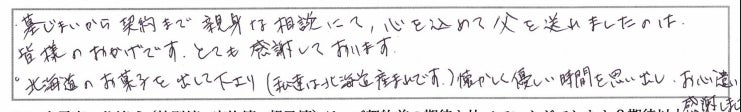 ・墓じまいから契約まで親身な相談にて、心を込めて父を送れましたのは、
皆様のおかげです。とても感謝しております。
。北海道のお菓子を出して下さり(私達は北海道産まれです。)懐かしく優しい時間を思い出し、お心遣い
感謝し